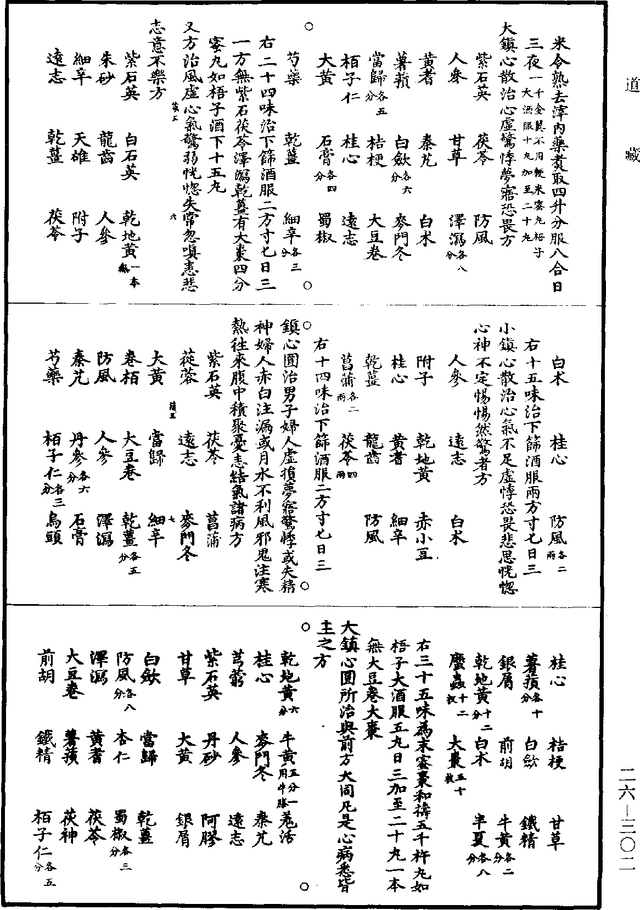 道藏
米令熟去滓內藥煑取四升分服八合日
三夜一千金翼不用粳米蜜丸梧子大酒服十丸加至二十丸
大鎮心散治心虛驚悸夢寤恐畏方
紫石英 茯苓 防風
人參 甘草 澤瀉各八分
黃耆 秦艽 白朮
薯蕷 白歛各六分 麥門冬
當歸各五分 桔梗 大豆卷
栢子仁 桂心 遠志
大黃 石膏各四分 蜀椒
芍藥 乾薑 細辛各三分
右二十四味治下篩酒服二方寸七日三
一方無紫石茯苓澤瀉乾薑有大棗四分
蜜丸如梧子酒下十五丸
又方治風虛心氣驚弱恍惚失常忽嗔恚悲
志意不樂方
紫石英 白石英 乾地黃一本
朱砂 龍齒 人參
細辛 天雄 附子
遠志 乾薑 茯苓
白朮 桂心 防風各二兩
右十五味治下篩酒服兩方寸七日三
小鎮心散治心氣不足虛悸恐畏悲思恍惚
心神不定惕惕然驚者方
人參 遠志 白朮
附子 乾地黃 赤小豆
桂心 黃耆 細辛
乾薑 龍齒 防風
菖蒲各二兩 茯苓四兩
右十四味治下篩酒服二方寸七日三
鎮心圓治男子婦人虛損夢寤驚悸或失精
神婦人赤白注漏或月水不利風邪鬼注寒
熱往來腹中積聚憂恚結氣諸病方
紫石英 茯苓 菖蒲
蓯蓉 遠志 麥門冬
大黃 當歸 細辛
卷栢 大豆卷 乾薑各五分
防風 人參 澤瀉
秦艽 丹參各六分 石膏
芍藥 栢子仁各三分 烏頭
桂心 桔梗 甘草
薯蕷各十分 白歛 鐵精
銀屑 前胡 牛黃各二分
乾地黃十二分 白朮 半夏各八分
䗪蟲十二枚 大棗五十枚
右三十五味為末蜜棗和擣五千杵丸如
梧子大酒服五丸日三加至二十丸一本
無大豆卷大棗
大鎮心圓所治與前方大同凡是心病悉皆
主之方
乾地黃六分 牛黃五分一用牛膝 羗活
桂心 麥門冬 秦艽
芎藭 人參 遠志
紫石英 丹砂 阿膠
甘草 大黃 銀屑
白歛 當歸 乾薑
防風各八分 杏仁 蜀椒各三分
澤瀉 黃耆 茯苓
大豆卷 薯蕷 茯神
前胡 鐵精 栢子仁各五
二六—三〇二